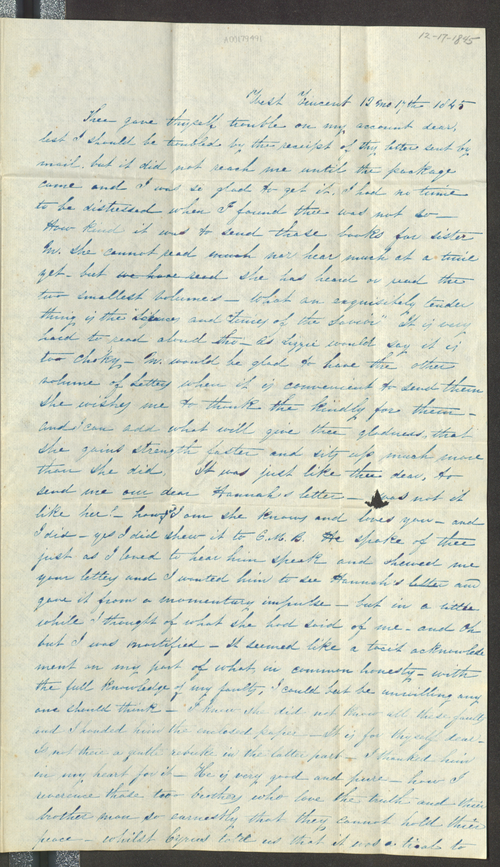 12-17-1845
West Vincent 12 mo 17th 1845
Thee gave thyself trouble on my account dear,
lest I should be troubled by the receipt of thy letter sent by
mail. but it did not reach me until the package
came and I was so glad to get it. I had no time
to be distressed when I found thee was not so —
How kind it was to send those books for sister
M. She cannot read much nor hear much at a time
yet. but we have read she has heard or read the
two smallest volumes — What an exquisitely tender
thing is the "Silence and times of the Savior" It is very
hard to read aloud tho — As Lizzie would say it is
too choky — M. would be glad to have the other
volume of letters when it is convenient to send them
She wishes me to thank thee kindly for them —
and I can add what will give thee gladness, that
she gains strength faster and sits up much more
than she did. It was just like thee dear, to
send me our dear Hannah's letter — was not it
like her? — how I am she knows and loves you — and
I did — yes I did shew it to C. M. B. He spoke of thee
just as I loved to hear him speak and shewed me
your letters and I wanted him to see Hannah's letter and
gave it from a momentary impulse — but in a little
while I thought of what she had said of me — and Oh
but I was mortified — it seemed like a tacit acknowledg
ment on my part of what in common honesty — with
the full knowledge of my faults, I could but be unwilling any
one should think — I knew she did not know all these faults
and I handed him the enclosed paper — It is for thyself dear —
Is not there a gentle rebuke in the latter part — I thanked him
in my heart for it — He is very good and pure — how I
reverence those two brothers who love the truth and their
brother man so earnestly that they cannot hold their
peace — whilst Cyrus told us that it was a trial to